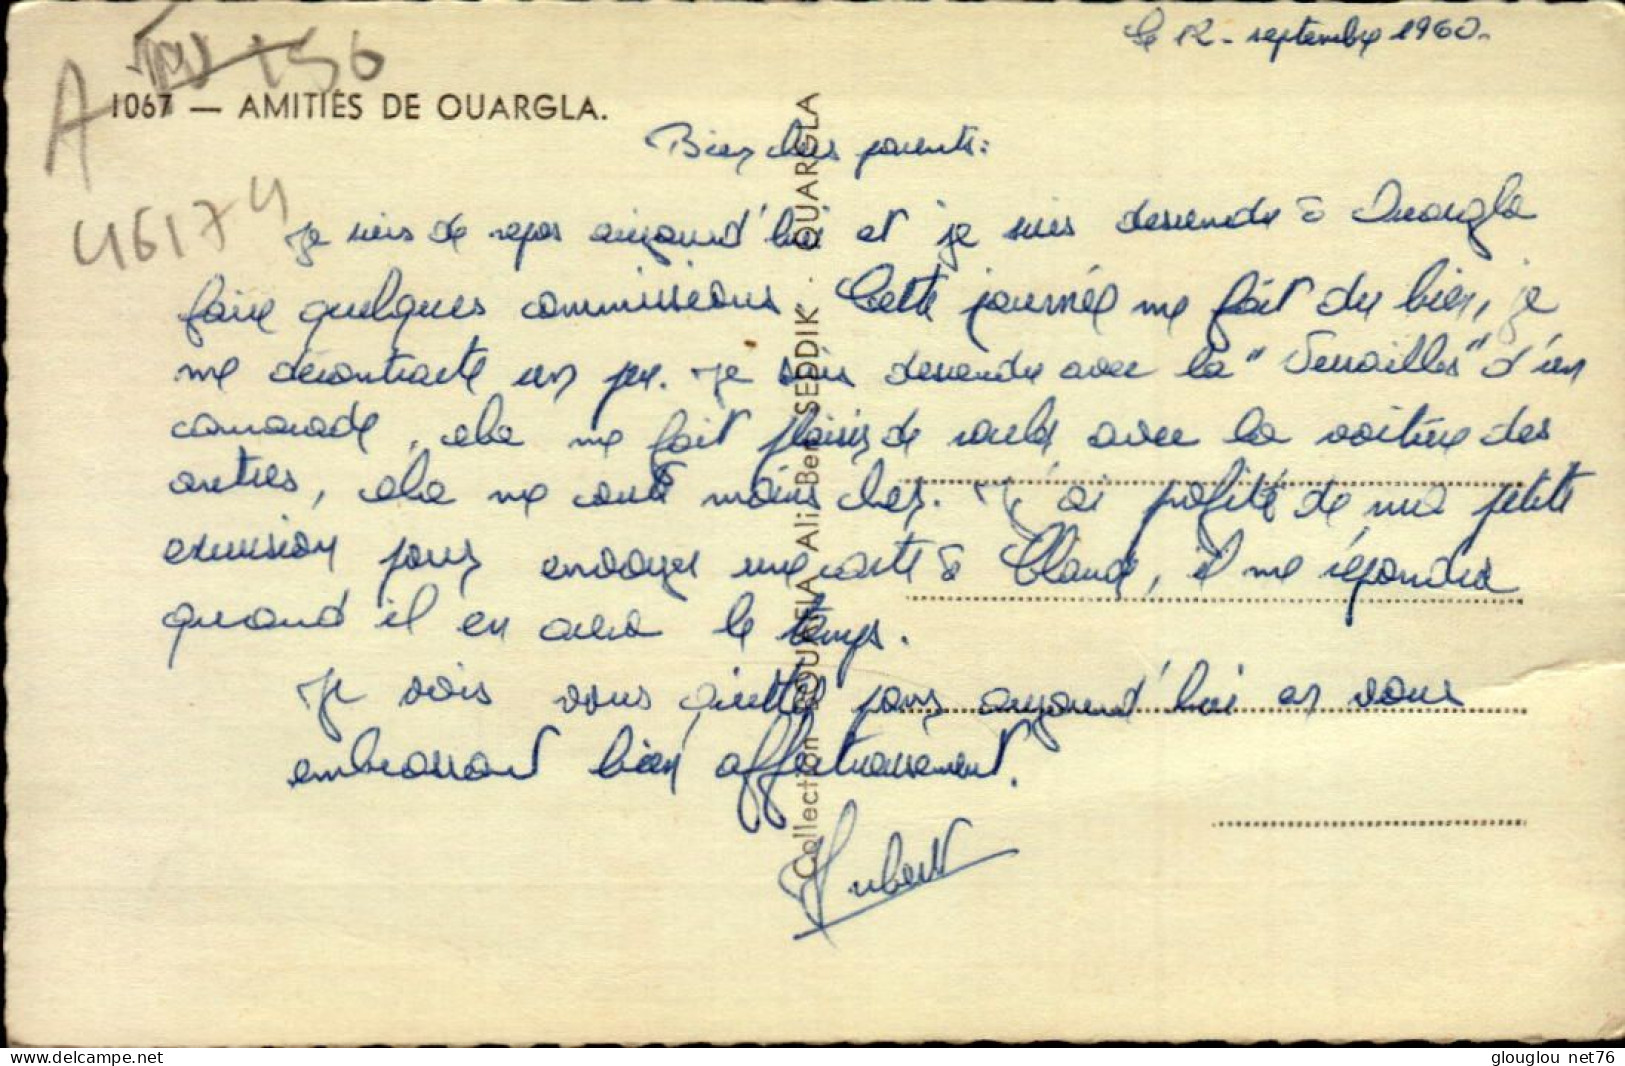 Le 12 - septembre 1960.
A
IV 156
1067 — AMITIÉS DE OUARGLA.
46174
Bien chers parents:
Je suis de repos aujourd'hui et je suis descendu à Ouargla
faire quelques commissions. Cette journée me fait du bien, je
me décontracte un peu. Je suis descendu avec la "Versailles" d'un
camarade, cela me fait plaisir de rouler avec la voiture des
autres, cela me coute moins cher. J'ai profité de ma petite
excursion pour envoyer une carte à Claude, il me répondra
quand il en aura le temps.
Je vais vous quitter pour aujourd'hui en vous
embrassant bien affectueusement.
Hubert
Collection BOUAFLA Ali Ben SEDDIK - OUARGLA
www.delcampe.net
glouglou net76